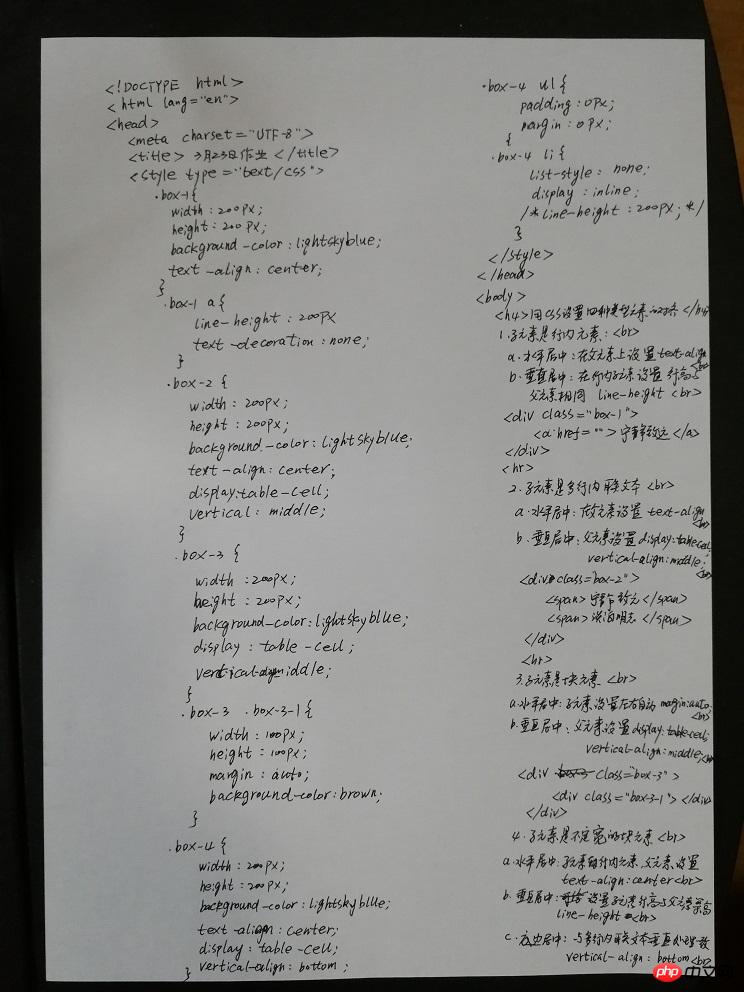 <!DOCTYPE html>
<html lang="en">
<head>
<meta charset="UTF-8">
<title>3月23日作业</title>
<style type="text/css">
.box-1{
width:200px;
height:200px;
background-color:lightskyblue;
text-align:center;
}
.box-1 a{
line-height:200px
text-decoration:none;
}
.box-2 {
width:200px;
height:200px;
background-color:lightskyblue;
text-align:center;
display:table-cell;
vertical:middle;
}
.box-3 {
width:200px;
height:200px;
background-color:lightskyblue;
display:table-cell;
vertical-align:middle;
}
.box-3 .box-3-1{
width:100px;
height:100px;
margin:auto;
background-color:brown;
}
.box-4{
width:200px;
height:200px;
background-color:lightskyblue;
text-align:center;
display:table-cell;
vertical-align:bottom;
}
.box-4 ul{
padding:0px;
margin:0px;
{
.box-4 li{
list-style:none;
display:inline;
/*line-height:200px;*/
}
</style>
</head>
<body>
<h4>用CSS设置四种类型元素的对齐</h4>
1.子元素是行内元素:<br>
a.水平居中:在父元素上设置text-align
b.垂直居中:在行内子元素设置行高与
父元素相同 line-height <br>
<div class="box-1">
<a href="">宁静致远</a>
</div>
<hr>
2.子元素是多行内联文本<br>
a.水平居中:在父元素设置text-align
<br>
b.垂直居中:父元素设置display:table-cell;
vertical-align:middle;
<br>
<div class=box-2">
<span>宁静致远</span>
<span>淡泊明志</span>
</div>
<hr>
3.子元素是块元素<br>
a.水平居中:子元素设置左右自动margin:auto;
<br>
b.垂直居中:父元素设置display:table-cell;
vertical-align:middle;<br
<div class="box-3">
<div class="box-3-1"></div>
</div>
4.子元素是不定宽的块元素<br>
a.水平居中:子元素转行内元素,父元素设置
text-align:center<br>
b.垂直居中:设置子元素行高与父元素等高
line-height<br>
c.底边居中:与多行内联文本垂直处理一致
vertical-align:bottom<br>
php中文网